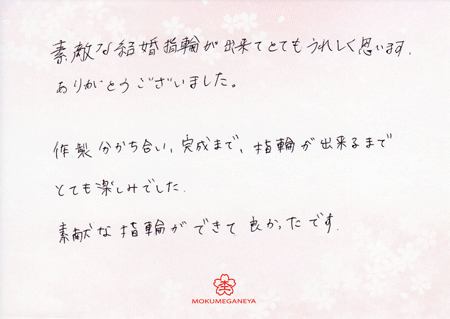 素敵な結婚指輪が出来てとてもうれしく思います.
ありがとうございました。
作製 分かち合い、完成まで、指輪が出来るまで
とても楽しみでした.
素献な指輪ができて良かったです.
MOKUMEGANEYA